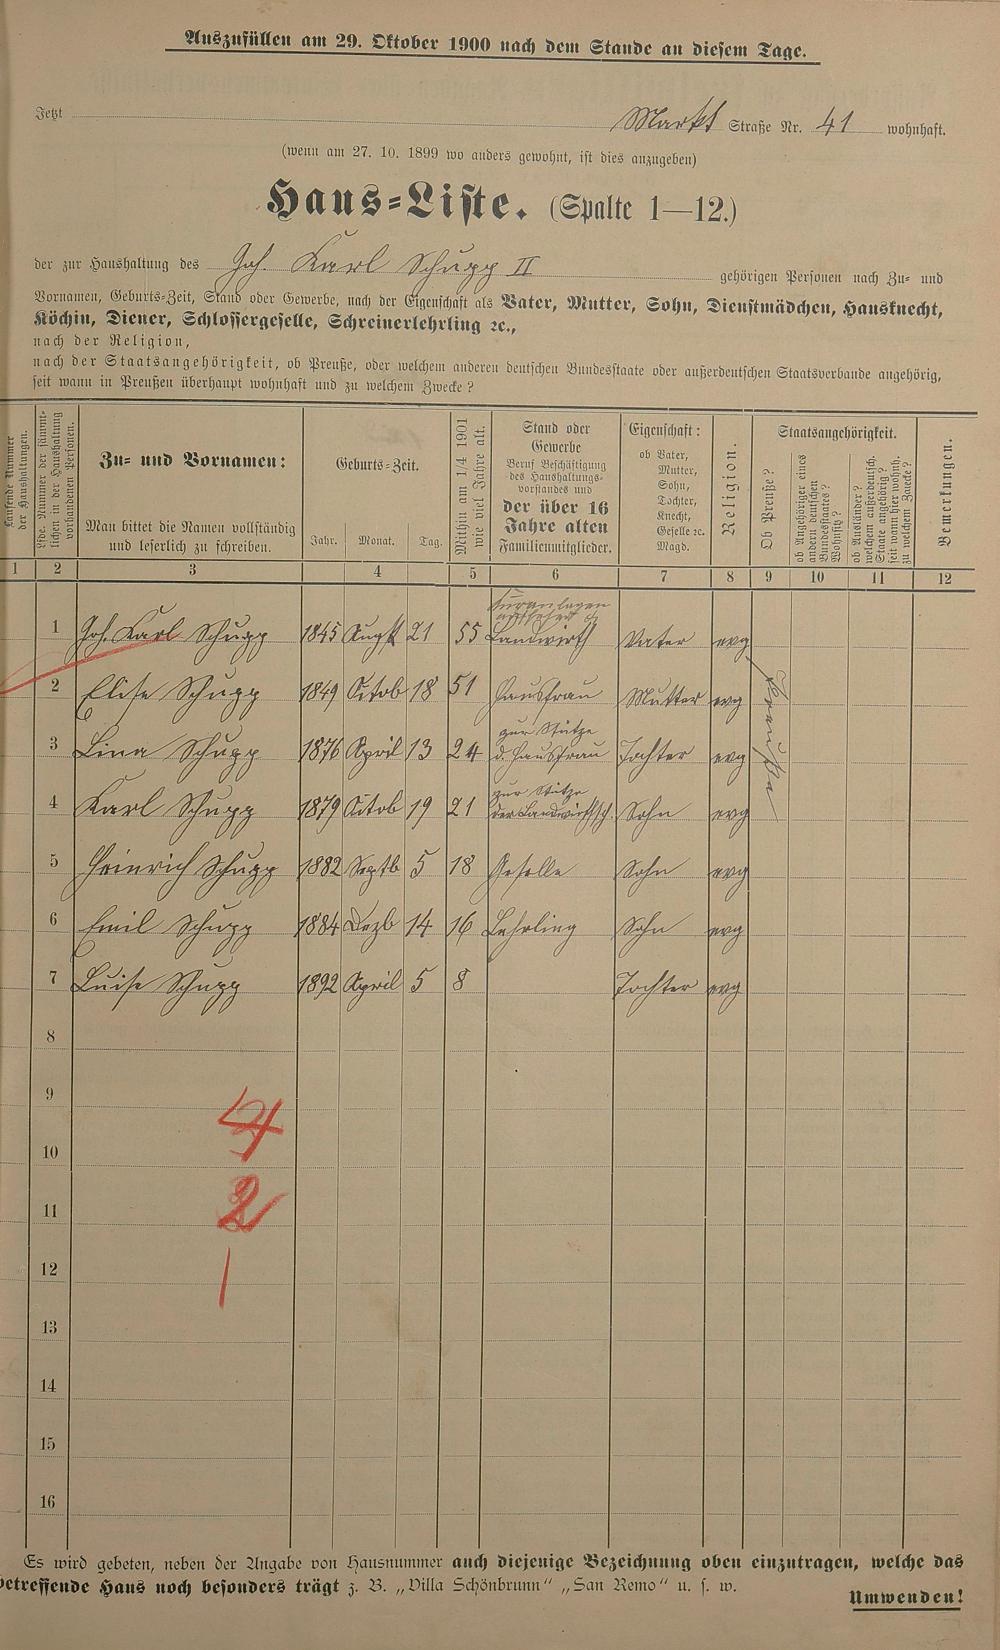 Auszufüllen am 29. Oktober 1900 nach dem Stande an diesem Tage.
Jetzt Markt Straße Nr. 41 wohnhaft.
(wenn am 27. 10. 1899 wo anders gewohnt, ist dies anzugeben)
Haus-Liste. (Spalte 1—12.)
der zur Haushaltung des Joh. Karl Schupp II gehörigen Personen nach Zu- und
Vornamen, Geburts-Zeit, Stand oder Gewerbe, nach der Eigenschaft als Vater, Mutter, Sohn, Dienstmädchen, Hausknecht,
Köchin, Diener, Schlossergeselle, Schreinerlehrling ꝛc.,
nach der Religion,
nach der Staatsangehörigkeit, ob Preuße, oder welchem anderen deutschen Bundesstaate oder außerdeutschen Staatsverbande angehörig,
seit wann in Preußen überhaupt wohnhaft und zu welchem Zwecke?
Laufende Nummer
der Haushaltungen.
Lfde. Nummer der sämmt-
lichen in der Haushaltung
vorhandenen Personen.
Zu- und Vornamen:
Man bittet die Namen vollständig
und leserlich zu schreiben.
Geburts-Zeit.
Jahr. Monat. Tag.
Mithin am 1/4 1901
wie viel Jahre alt.
Stand oder
Gewerbe
Beruf Beschäftigung
des Haushaltungs-
vorstandes und
der über 16
Jahre alten
Familienmitglieder.
Eigenschaft:
ob Vater,
Mutter,
Sohn,
Tochter,
Knecht,
Geselle ꝛc.
Magd.
Religion.
Staatsangehörigkeit.
Ob Preuße?
ob Angehöriger eines
andern deutschen
Bundesstaates?
Wohnsitz?
ob Ausländer?
welchem außerdeutsch.
Staate angehörig?
seit wann hier wohnh.
zu welchem Zwecke?
Bemerkungen.
1 2 3 4 5 6 7 8 9 10 11 12
Kuranlagen
1 Joh. Karl Schupp 1845 August 21 55 Landwirth Vater evg
2 Elise Schupp 1849 Octob 18 51 Hausfrau Mutter evg
Preuße
zur Stütze
3 Lina Schupp 1876 April 13 24 d. Hausfrau Tochter evg
zur Stütze
4 Karl Schupp 1879 Octob 19 21 der Landwirthsch. Sohn evg
5 Heinrich Schupp 1882 Septb 5 18 Geselle Sohn evg
6 Emil Schupp 1884 Dezb 14 16 Lehrling Sohn evg
7 Luise Schupp 1892 April 5 8 Tochter evg
8
9
4
10
11 2
12 1
13
14
15
16
Es wird gebeten, neben der Angabe von Hausnummer auch diejenige Bezeichnung oben einzutragen, welche das
betreffende Haus noch besonders trägt z. B. „Villa Schönbrunn“ „San Remo“ u. s. w.
Umwenden!